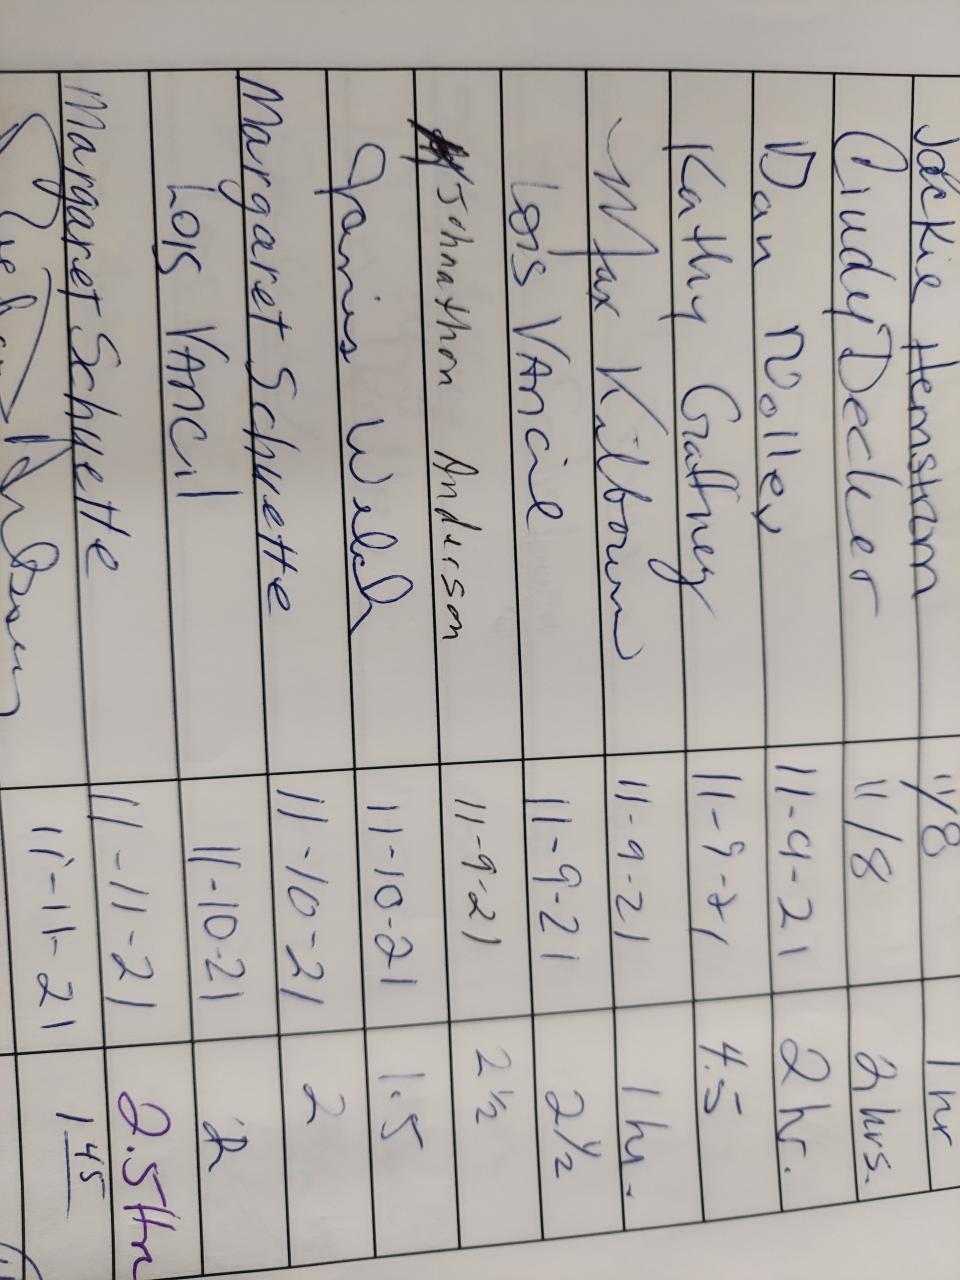 Jackie Hemstrom 11/8 1 hr
Cindy Decker 11/8 2 hrs.
Dan 11-9-21 2 hr.
Kathy Gaffney 11-9-21 4.5
Max Kilbourn 11-9-21 1 hr.
Lois VAncil 11-9-21 2 1/2
Johnathon Anderson 11-9-21 2 1/2
Janis Welch 11-10-21 1.5
Margaret Schuette 11-10-21 2
Lois VAncil 11-10-21 2
Margaret Schuette 11-11-21 2.5 Hr
11-11-21 1 45